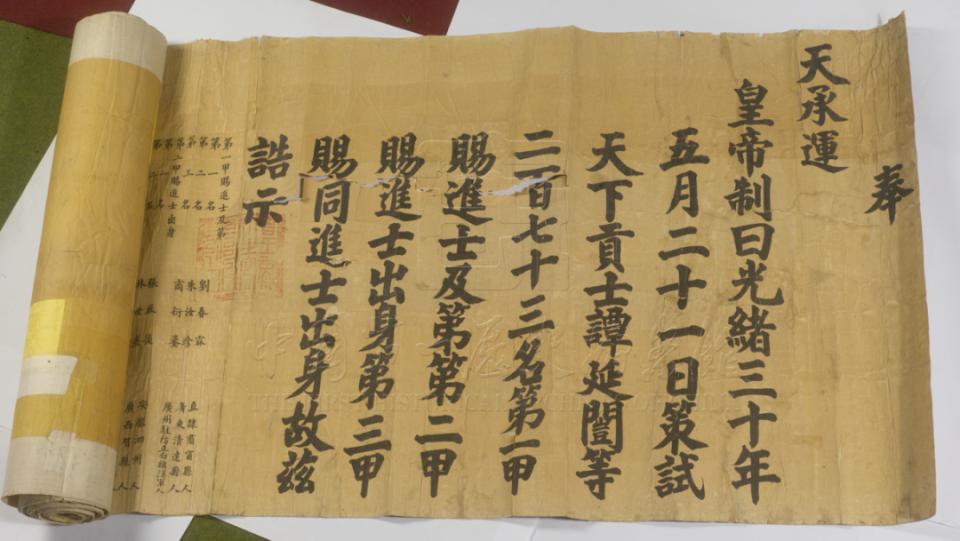 奉
天承運
皇帝制曰光緒三十年
五月二十一日策試
天下貢士譚延闓等
二百七十三名第一甲
賜進士及第第二甲
賜進士出身第三甲
賜同進士出身故茲
誥示
第一甲賜進士及第
第一名 劉春霖 直隸肅寧縣人
第二名 朱汝珍 廣東清遠縣人
第三名 商衍鎏 廣州駐防正白旗漢軍人
第二甲賜進士出身
第一名 張啟後 安徽泗州人
林世 廣西賀縣人